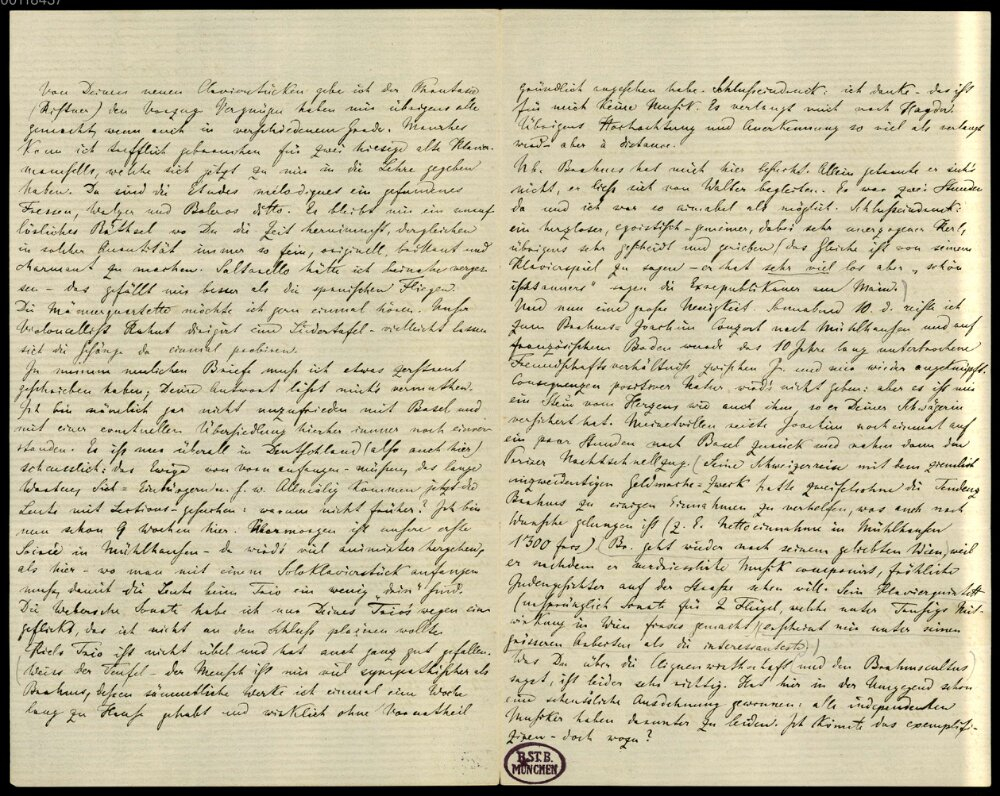 00118457
Von Deinen neuen Clavierstücken gebe ich der Phantasie
(Kistner) den Vorzug. Vergnügen haben mir übrigens alle
gemacht, wenn auch in verschiedenem Grade. Manches
kann ich trefflich gebrauchen für zwei hiesige alte Klavier-
mamsells, welche sich jetzt zu mir in die Lehre gegeben
haben. Da sind die Etudes mélodiques ein gefundenes
Fressen, Walzer und Boleros ditto. Es bleibt mir ein unauf-
lösliches Räthsel wo Du die Zeit hernimmst, dergleichen
in solcher Quantität immer so fein, originell, brillant und
charmant zu machen. Saltarello hätte ich beinahe verges-
sen – das gefällt mir besser als die spanischen Fliegen.
Die Männerquartette möchte ich gern einmal hören. Unser
Violoncellist Kahnt dirigirt eine Liedertafel – vielleicht lassen
sich die Gesänge da einmal probiren.
In meinem neulichen Briefe muß ich etwas zerstreut
geschrieben haben; Deine Antwort läßt mich's vermuthen.
Ich bin nämlich gar nicht unzufrieden mit Basel und
mit einer eventuellen Übersiedlung hierher immer noch einver-
standen. Es ist nur überall in Deutschland (also auch hier)
scheusslich: das Ewige von vorn anfangen-müssen, das lange
Warten, Sich-Einbürgern u. s. w. Allmälig kommen jetzt die
Leute mit Lections-Gesuchen: warum nicht früher? Ich bin
nun schon 9 Wochen hier. Übermorgen ist unsre erste
Soirée in Mühlhausen – da wird's viel animirter hergehen,
als hier – wo man mit einem Soloklavierstück anfangen
muß, damit die Leute beim Trio ein wenig da sind.
Die Webersche Sonate habe ich nur Deines Trios wegen ein-
geflickt, das ich nicht an den Schluß plaziren wollte.
Kiels Trio ist nicht übel und hat auch ganz gut gefallen.
(Weiss der Teufel – der Mensch ist mir viel sympathischer als
Brahms, dessen sämmtliche Werke ich einmal eine Woche
lang zu Hause gehabt und wirklich ohne Vorurtheil
gründlich angesehen habe. Schlußeindruck: ich danke – das ist
für mich keine Musik. Es verlangt mich nach Haydn.
Übrigens Hochachtung und Anerkennung so viel als verlangt
wird – aber à distance.
NB. Brahms hat mich hier besucht. Allein getraute er sich's
nicht, er ließ sich von Walter begleiten. Er war zwei Stunden
da und ich war so aimabel als möglich. Schlußeindruck:
ein herzloser, egoistisch-gemeiner, dabei sehr unerzogener Kerl,
übrigens sehr gescheidt und gerieben (das Gleiche ist von seinem
Klavierspiel zu sagen – er hat sehr viel los aber „schön
ischt anners" sagen die Exrepublikaner am Main.)
Und nun eine große Neuigkeit. Sonnabend 10. d. reiste ich
zum Brahms-Joachim Conzert nach Mühlhausen und auf
französischem Boden wurde das 10 Jahre lang unterbrochene
Freundschaftsverhältniß zwischen J. und mir wieder angeknüpft.
Consequenzen positiver Natur wird's nicht geben: aber es ist mir
ein Stein vom Herzen wie auch ihm, so er Deiner Schwägerin
versichert hat. Meinetwillen reiste Joachim noch einmal auf
ein paar Stunden nach Basel zurück und nahm dann den
Pariser Nachtschnellzug. (Seine Schweizerreise mit dem ziemlich
unzweideutigen Geldmache-Zweck hatte zweifelsohne die Tendenz
Brahms zu einigen Einnahmen zu verhelfen, was auch nach
Wunsche gelungen ist (z. E. Nettoeinnahme in Mühlhausen
1300 fcs) (Br. geht wieder nach seinem geliebten Wien, weil
er nachdem er verdriessliche Musik componirt, fröhliche
Judengesichter auf der Straße sehen will. Sein Klavierquintett
(ursprünglich Sonate für 2 Flügel, welche unter Tausigs Mit-
wirkung in Wien fiasco gemacht) erscheint mir unter seinen
grösseren Arbeiten als die interessanteste.)
Was Du über die Cliquenwirthschaft und den Brahmscultus
sagst, ist leider sehr richtig. Hat hier in der Umgegend schon
eine scheussliche Ausdehnung gewonnen: alle independenten
Musiker haben darunter zu leiden. Ich könnte das exemplifi-
ziren – doch wozu?
B.ST.B.
MÜNCHEN